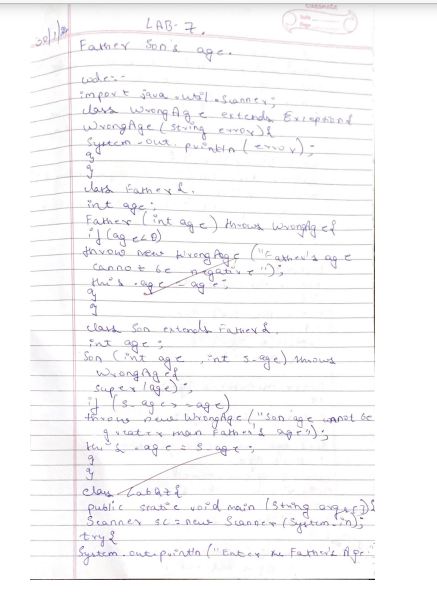 LAB-7.
Father Son's age.
code:-
import java.util.Scanner;
class WrongAge extends Exception{
WrongAge (String error){
System.out.println(error);
}
}
class Father{
int age;
Father (int age) throws WrongAge{
if (age<0)
throw new WrongAge ("Father's age
cannot be negative");
this.age = age;
}
}
class Son extends Father{
int age;
Son (int age, int s-age) throws
WrongAge{
super(age);
if (s-age>=age)
throw new WrongAge ("Son age cannot be
greater than Father's age");
this.age = s-age;
}
}
class Lab07{
public static void main (String args[]){
Scanner sc = new Scanner (System.in);
try{
System.out.println ("Enter the Father's Age"